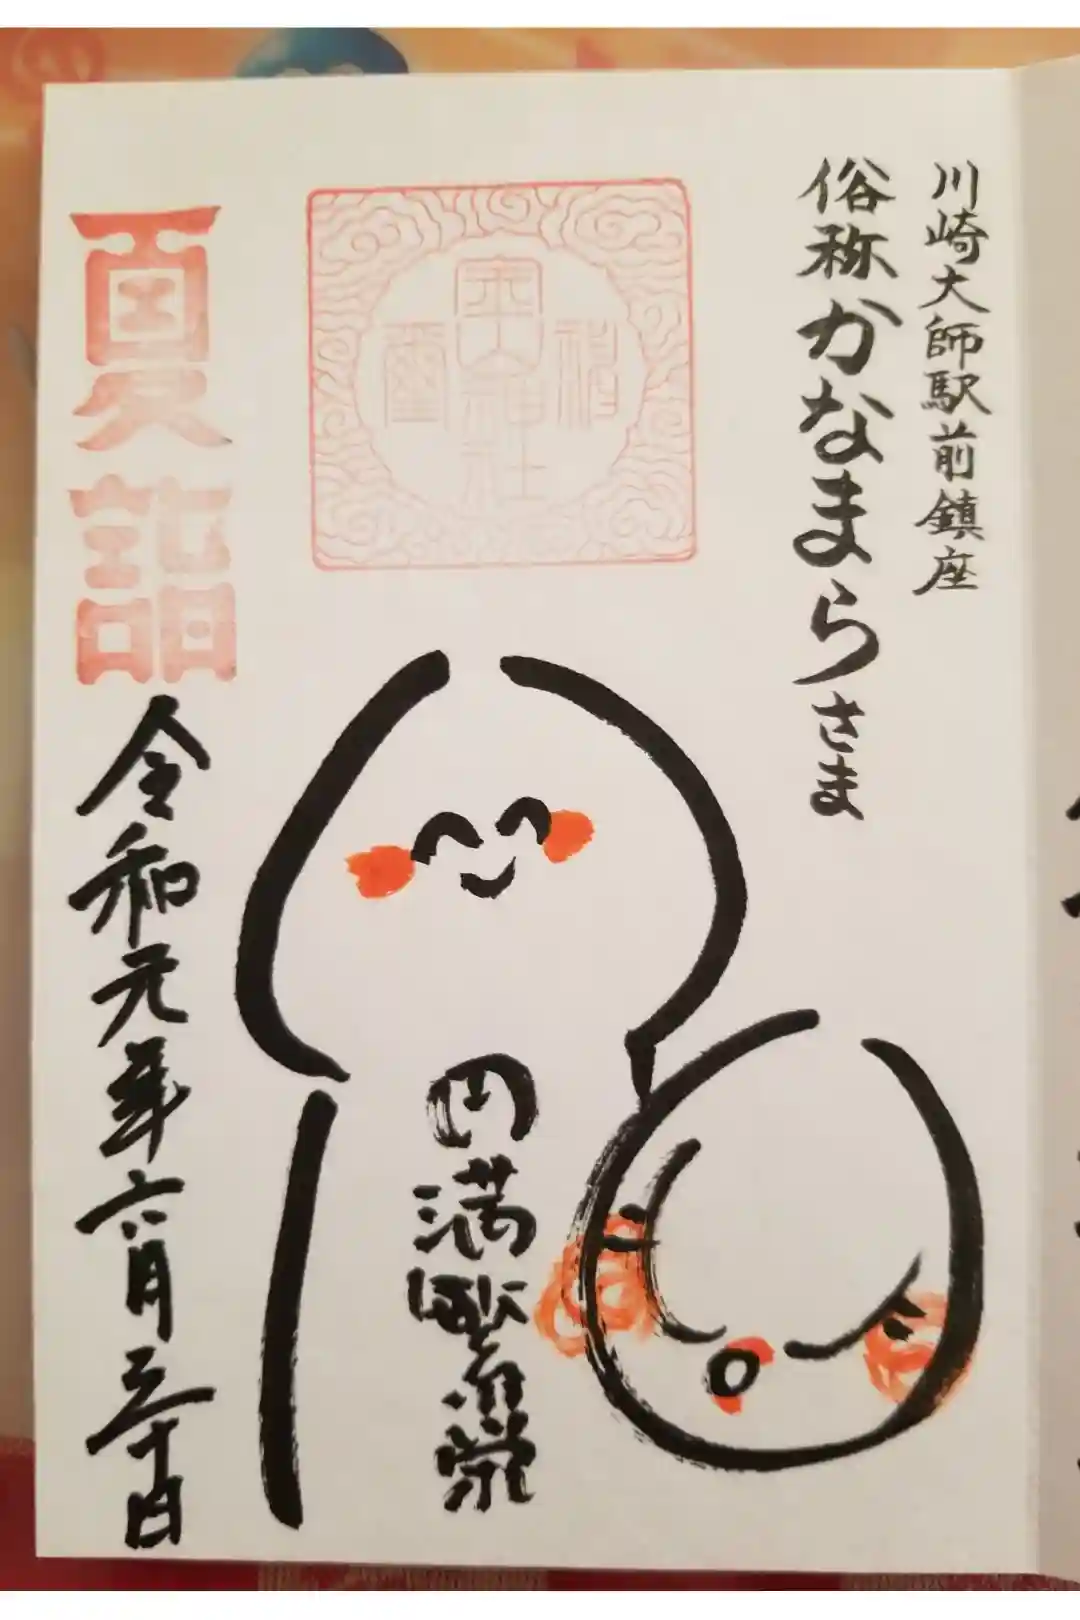 川崎大師駅前鎮座
俗称かなまらさま
金山神社
神璽
円満
繁栄
夏詣
令和元年六月三十日